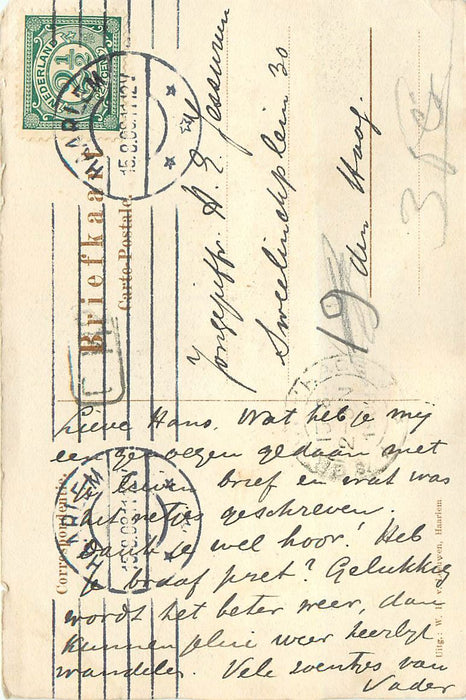 NEDERLAND
2½
CENT
HAARLEM
15.8.08.11-12V
Briefkaart
Carte Postale
Jongejuffr. A. E. Jessurun
Sweelinckplein 30
den Haag.
19
Lieve Hans. Wat heb je mij
een genoegen gedaan met
je lieven brief en wat was
het netjes geschreven.
Dank je wel hoor! Heb
je braaf pret? Gelukkig
wordt het beter weer, dan
kunnen jelui weer heerlijk
wandelen. Vele zoentjes van
Vader
Correspondentie
HAARLEM
15.8.08.11-12V
Uitg.: W. Haarlem